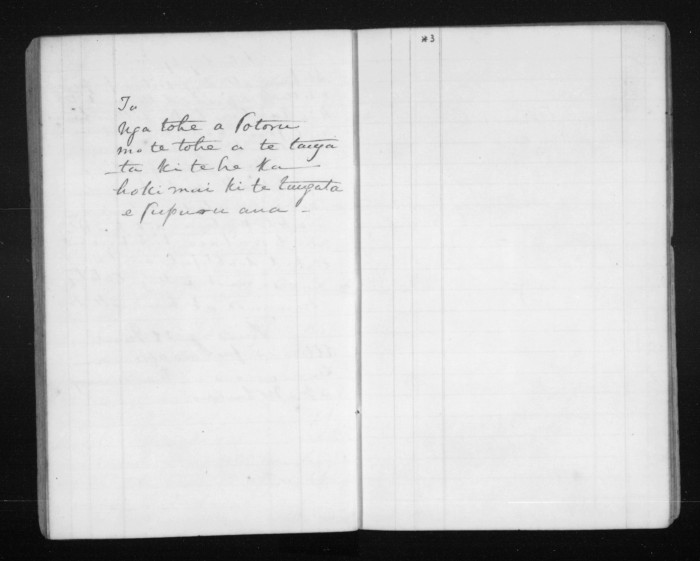 #3
Ju
Nga tohe a Potoru
mo te tohe a te tanga
ta ki te he ka
hoki mai ki te tangata
e pupuru ana –